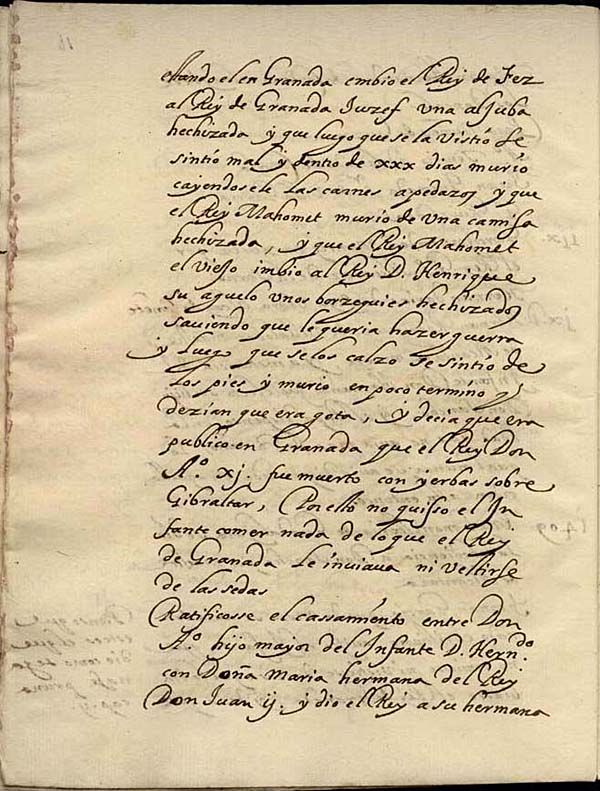 estando el en Granada embio el Rey de Fez
al Rey de Granada Iuzef una aljuba
hechizada y que luego que se la vistió se
sintió mal y dentro de xxx dias murio
cayendosele las carnes a pedazos y que
el Rey Mahomet murio de una camisa
hechizada, y que el Rey Mahomet
el viejo imbio al Rey D. Henrique
su aguelo unos borzeguies hechizados
saviendo que le queria hazer guerra
y luego que se los calzo se sintió de
los pies y murio en poco termino y
dezian que era gota, y decia que era
publico en Granada que el Rey Don
A.º xj. fue muerto con yerbas sobre
Gibraltar, Por esto no quisso el In
fante comer nada de lo que el Rey
de Granada le inviava ni vestirse
de las sedas
Ratificosse el cassamiento entre Don
A.º hijo mayor del Infante D. Hern.do
con Doña Maria hermana del Rey
Don Juan ij. y dio el Rey a su hermana